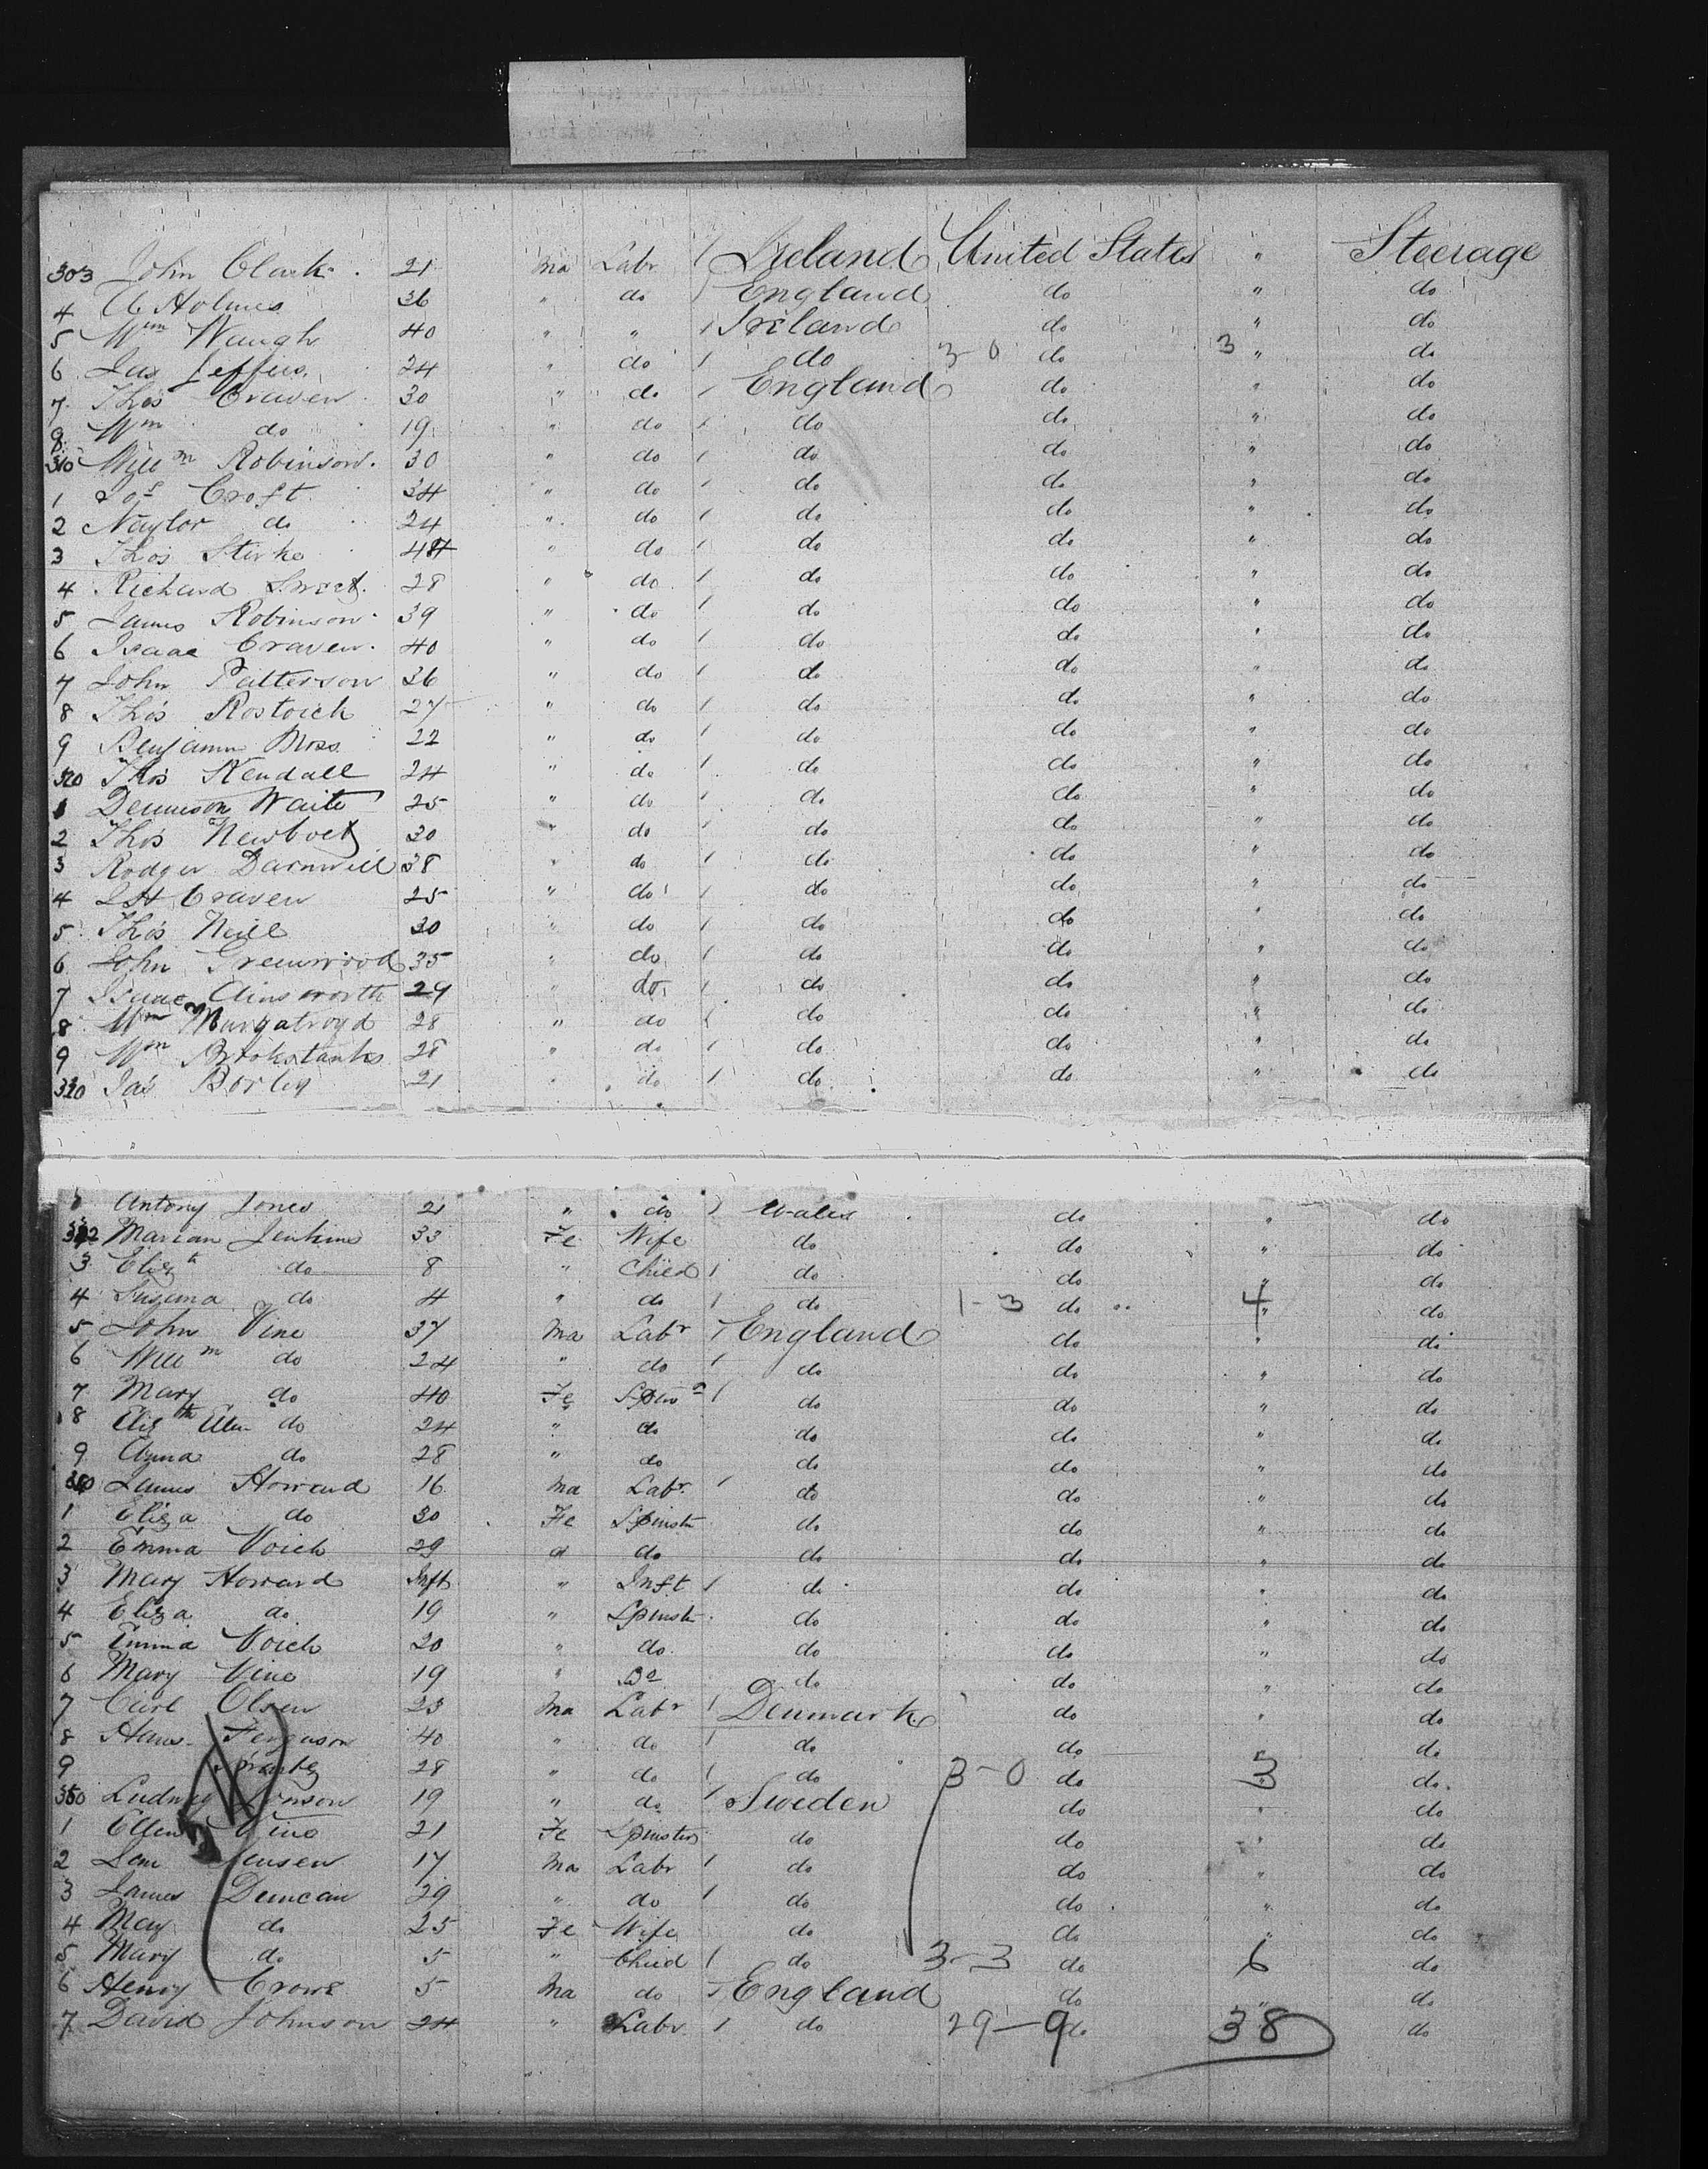 303 John Clark 21 Ma Labr / Ireland United States " Steerage
4 A Holmes 36 " do / England do " do
5 Wm Waugh 40 " " / Ireland do " do
6 Jas 24 " do / do 3-0 do 3 " do
7 Thos Craven 30 " do / England do " do
8 Wm do 19 " do / do do " do
310 Willm Robinson 30 " do / do do " do
1 Jos Croft 34 " do / do do " do
2 Naylor do 24 " do / do do " do
3 Thos Stirke 44 " do / do do " do
4 Richard 28 " do / do do " do
5 James Robinson 39 " do / do do " do
6 Isaac Craven 40 " do / do do " do
7 John Patterson 36 " do / do do " do
8 Thos Rostoick 27 " do / do do " do
9 Benjamin Moss 22 " do / do do " do
320 Thos Kendall 24 " do / do do " do
1 Dennison Waite 25 " do / do do " do
2 Thos 30 " do / do do " do
3 Rodger Darnwell 38 " do / do do " do
4 Craven 25 " do / do do " do
5 Thos Neill 30 " do / do do " do
6 John Greenwood 35 " do / do do " do
7 Isaac Ainsworth 29 " do / do do " do
8 Wm Murgatroyd 28 " do / do do " do
9 Wm 28 " do / do do " do
330 Jas Borley 21 " do / do do " do
Antony Jones 21 " do / Wales do " do
332 Marian Jenkins 33 Fe Wife do do " do
3 Elizth do 8 " Child / do do " do
4 do 4 " do / do 1-3 do 4 " do
5 John Vine 37 Ma Labr / England do " do
6 Willm do 24 " do / do do " do
7 Mary do 40 Fe Spinr / do do " do
8 Elizth Ellen do 24 " do do do " do
9 Anna do 28 " do do do " do
340 James Howard 16 Ma Labr / do do " do
1 Eliza do 30 Fe Spinstr do do " do
2 Emma Voich 29 " do do do " do
3 Mary Howard Inft " Inft / do do " do
4 Eliza do 19 " Spinstr do do " do
5 Emma Voich 20 " do do do " do
6 Mary Vine 19 " Do do do " do
7 Carl Olsen 23 Ma Labr / Denmark do " do
8 Hans Ferguson 40 " do / do do " do
9 28 " do / do 3-0 do 3 do
350 Ludwig 19 " do / Sweden do " do
1 Ellen Vine 21 Fe Spinster do do " do
2 Jensen 17 Ma Labr / do do " do
3 James Duncan 29 " do / do do " do
4 May do 25 Fe Wife do do " do
5 Mary do 5 " Child / do 3-3 do 6 do
6 Henry Crowe 5 Ma do / England do " do
7 David Johnson 24 " Labr / do 29-9 do 38 do